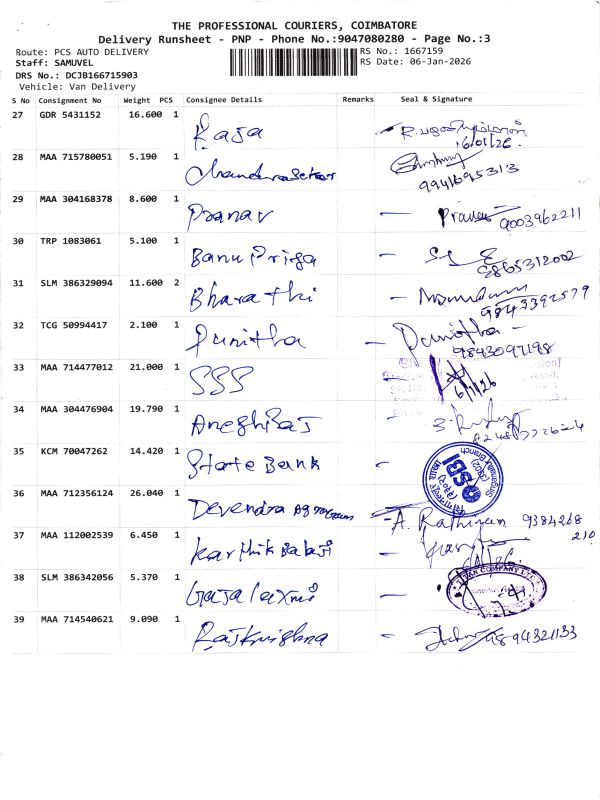 THE PROFESSIONAL COURIERS, COIMBATORE
Delivery Runsheet - PNP - Phone No.:9047080280 - Page No.:3
Route: PCS AUTO DELIVERY RS No.: 1667159
Staff: SAMUVEL RS Date: 06-Jan-2026
DRS No.: DCJB166715903
Vehicle: Van Delivery
S No Consignment No Weight PCS Consignee Details Remarks Seal & Signature
27 GDR 5431152 16.600 1 Raja
28 MAA 715780051 5.190 1 Chandrasekar 9941695313
29 MAA 304168378 8.600 1 Pranav - 9003962211
30 TRP 1083061 5.100 1 Banu Priya - 9865312002
31 SLM 386329094 11.600 2 Bharathi - 9843392579
32 TCG 50994417 2.100 1 Punitha - Punitha -
9843097198
33 MAA 714477012 21.000 1 SSS 6/1/26
34 MAA 304476904 19.790 1
35 KCM 70047262 14.420 1 State Bank - SBI
36 MAA 712356124 26.040 1 Devendra - A. 9384268
210
37 MAA 112002539 6.450 1 Karthik Balaji -
38 SLM 386342056 5.370 1 Gajalaxmi - TITAN COMPANY LTD
39 MAA 714540621 9.090 1 Rajkrishna - 9894321133